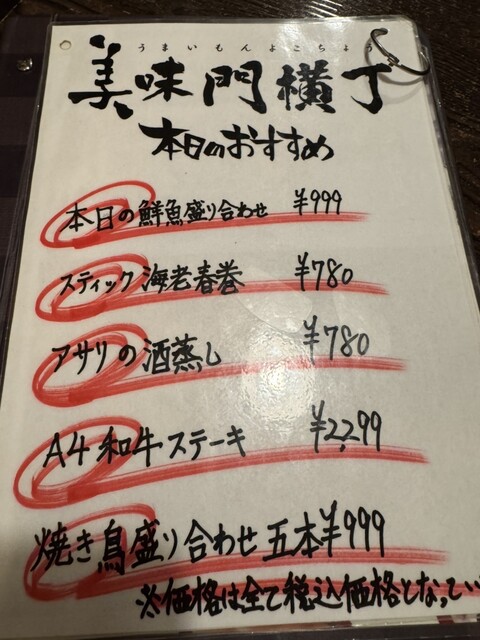 うまいもんよこちょう
美味門横丁
本日のおすすめ
本日の鮮魚盛り合わせ ¥999
スティック海老春巻 ¥780
アサリの酒蒸し ¥780
A4和牛ステーキ ¥2,299
焼き鳥盛り合わせ五本¥999
※価格は全て税込価格となってい